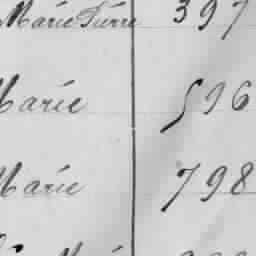 Marie Pierre 397
Marie 596
Marie 798